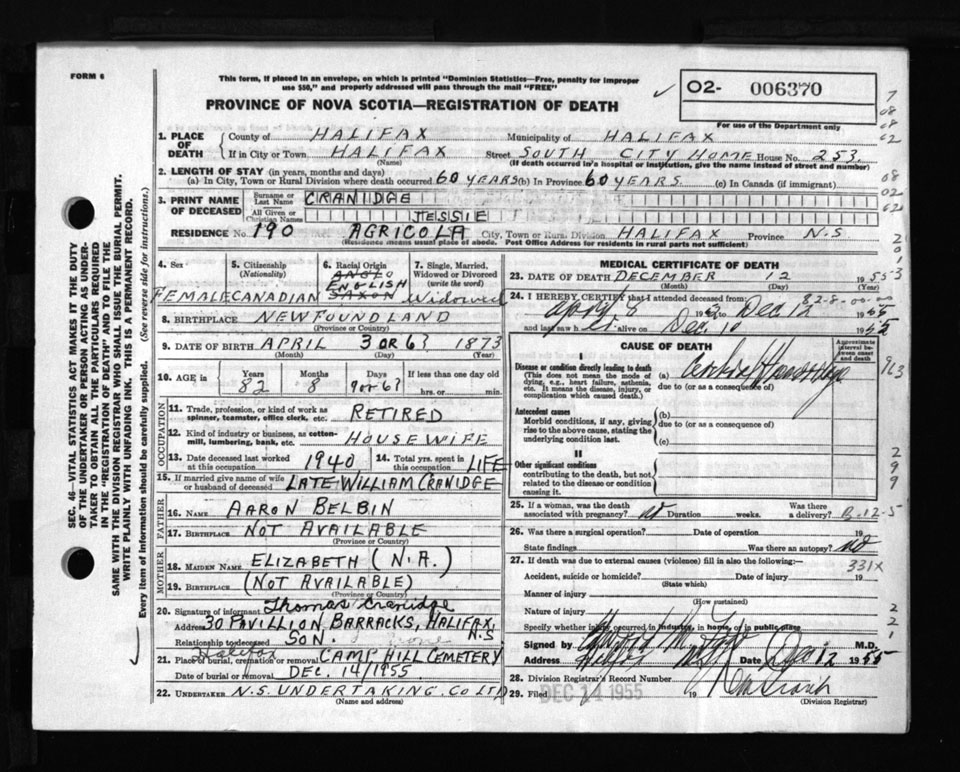 FORM 6
This form, if placed in an envelope, on which is printed "Dominion Statistics—Free, penalty for improper
use $50," and properly addressed will pass through the mail "FREE"
PROVINCE OF NOVA SCOTIA—REGISTRATION OF DEATH
02- 006370
For use of the Department only
7
08
08
62
08
02
62
2
0
1
3
SEC. 46—VITAL STATISTICS ACT MAKES IT THE DUTY
OF THE UNDERTAKER OR PERSON ACTING AS UNDER-
TAKER TO OBTAIN ALL THE PARTICULARS REQUIRED
IN THE "REGISTRATION OF DEATH" AND TO FILE THE
SAME WITH THE DIVISION REGISTRAR WHO SHALL ISSUE THE BURIAL PERMIT.
WRITE PLAINLY WITH UNFADING INK. THIS IS A PERMANENT RECORD.
Every item of information should be carefully supplied. (See reverse side for instructions.)
1. PLACE OF DEATH County of HALIFAX Municipality of HALIFAX
If in City or Town HALIFAX Street SOUTH CITY HOME House No. 253
(Name) (If death occurred in a hospital or institution, give the name instead of street and number)
2. LENGTH OF STAY (in years, months and days)
(a) In City, Town or Rural Division where death occurred 60 YEARS (b) In Province 60 YEARS. (c) In Canada (if immigrant)
3. PRINT NAME OF DECEASED Surname or Last Name CRANIDGE
All Given or Christian Names JESSIE
RESIDENCE No. 190 AGRICOLA City, Town or Rural Division HALIFAX Province N.S.
(Residence means usual place of abode. Post Office Address for residents in rural parts not sufficient)
4. Sex FEMALE
5. Citizenship (Nationality) CANADIAN
6. Racial Origin ANGLO ENGLISH SAXON
7. Single, Married, Widowed or Divorced (write the word) Widowed
8. BIRTHPLACE NEWFOUNDLAND
(Province or Country)
9. DATE OF BIRTH APRIL 3 OR 6? 1873
(Month) (Day) (Year)
10. AGE in Years 82 Months 8 Days 9 or 6? If less than one day old
hrs. or min.
OCCUPATION
11. Trade, profession, or kind of work as spinner, teamster, office clerk, etc. RETIRED
12. Kind of industry or business, as cotton-mill, lumbering, bank, etc. HOUSEWIFE
13. Date deceased last worked at this occupation 1940 14. Total yrs. spent in this occupation LIFE
15. If married give name of wife or husband of deceased LATE WILLIAM CRANIDGE
FATHER
16. NAME AARON BELBIN
17. BIRTHPLACE NOT AVAILABLE
(Province or Country)
MOTHER
18. MAIDEN NAME ELIZABETH (N.A.)
19. BIRTHPLACE (NOT AVAILABLE)
(Province or Country)
20. Signature of informant Thomas Cranidge
Address 30 PAVILLION BARRACKS, HALIFAX, N.S.
Relationship to deceased SON.
21. Halifax Place of burial, cremation or removal CAMP HILL CEMETERY
Date of burial or removal DEC. 14/1955
22. UNDERTAKER N.S. UNDERTAKING. CO LTD
(Name and address)
MEDICAL CERTIFICATE OF DEATH
23. DATE OF DEATH DECEMBER 12 1955
(Month) (Day)
24. I HEREBY CERTIFY that I attended deceased from 82-8-00-00
April 8 19 to Dec 12 1955
and last saw h alive on Dec. 10 1955
CAUSE OF DEATH
Approximate interval between onset and death
I
Disease or condition directly leading to death (a) Cerebral Hemorrhage
(This does not mean the mode of dying, e.g., heart failure, asthenia, etc. It means the disease, injury, or complication which caused death.) due to (or as a consequence of)
963
Antecedent causes (b)
Morbid conditions, if any, giving rise to the above cause, stating the underlying condition last. due to (or as a consequence of)
(c)
II
Other significant conditions
contributing to the death, but not related to the disease or condition causing it.
2
9
9
25. If a woman, was the death associated with pregnancy? no Duration weeks. Was there a delivery? B-12-5
26. Was there a surgical operation? Date of operation 19
State findings Was there an autopsy? no
27. If death was due to external causes (violence) fill in also the following:—
331X
Accident, suicide or homicide? Date of injury 19
(State which)
Manner of injury
(How sustained)
Nature of injury
Specify whether injury occurred in industry, in home, or in public place
2
2
1
Signed by M.D.
Address Halifax N.S. Date Dec 12 1955
28. Division Registrar's Record Number
29. Filed DEC 14 1955 19
(Division Registrar)